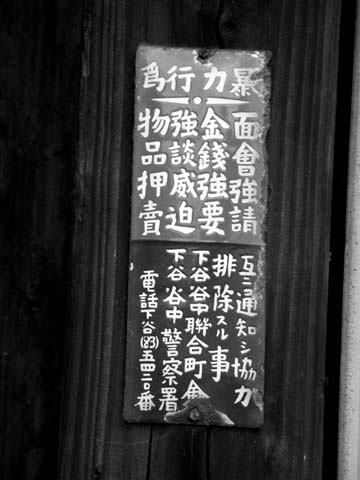 暴力行為
面會強請
金錢強要
強談威迫
物品押賣
互ニ通知シ協力
排除スル事
下谷谷中聯合町會
下谷谷中警察署
電話下谷(83)五四二〇番